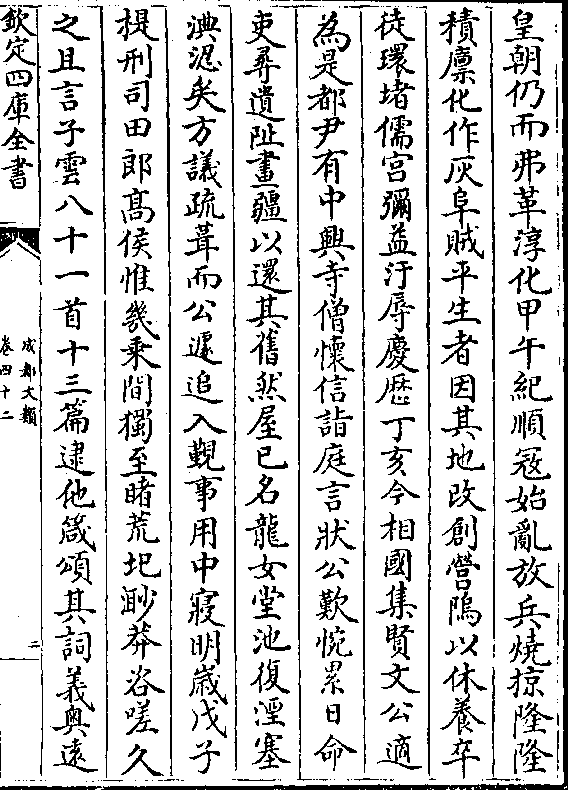 皇朝仍而弗革淳化甲午紀順㓂始亂放兵燒掠隆隆
積廪化作灰阜賊平生者因其地改創營隖以休養卒
徒環堵儒宫彌益汙辱慶歴丁亥今相國集賢文公適
為是都尹有中興寺僧懷信詣庭言狀公歎惋累日命
吏尋遺阯畫疆以還其舊然屋已名龍女堂池復湮塞
淟涊矣方議疏葺而公遽追入覲事用中寢明嵗戊子
提刑司田郎髙侯惟㡬乗間獨至睹荒圯渺莽洛嗟久
之且言子雲八十一首十三篇逮他箴頌其詞義奥遠
欽定四庫全書
成都文類
卷四十二
二